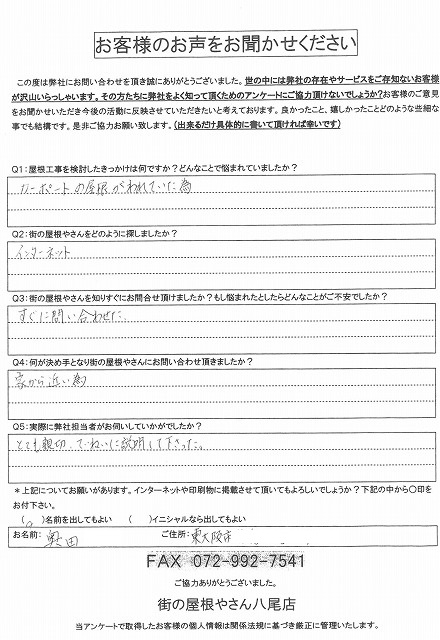 お客様のお声をお聞かせください
この度は弊社にお問い合わせを頂き誠にありがとうございました。世の中には弊社の存在やサービスをご存知ないお客様
が沢山いらっしゃいます。その方たちに弊社をよく知って頂くためのアンケートにご協力頂けないでしょうか？お客様のご意見
をお聞かせいただき今後の活動に反映させていただきたいと考えております。良かったこと、嬉しかったことどのような些細な
事でも結構です。是非ご協力お願い致します。（出来るだけ具体的に書いて頂ければ幸いです）
Q1：屋根工事を検討したきっかけは何ですか？どんなことで悩まれていましたか？
カーポートの屋根がわれていた為
Q2：街の屋根やさんをどのように探しましたか？
インターネット
Q3：街の屋根やさんを知りすぐにお問合せ頂けましたか？もし悩まれたとしたらどんなことがご不安でしたか？
すぐに問い合わせた。
Q4：何が決め手となり街の屋根やさんにお問い合わせ頂きましたか？
家から近い為
Q5：実際に弊社担当者がお伺いしていかがでしたか？
とても親切、ていねいに説明して下さった。
＊上記についてお願いがあります。インターネットや印刷物に掲載させて頂いてもよろしいでしょうか？下記の中から○印を
お付下さい。
（○）名前を出してもよい　（　）イニシャルなら出してもよい
お名前：奥田　ご住所：東大阪市
FAX 072-992-7541
ご協力ありがとうございました。
街の屋根やさん八尾店
当アンケートで取得したお客様の個人情報は関係法規に基づき厳正に管理いたします。